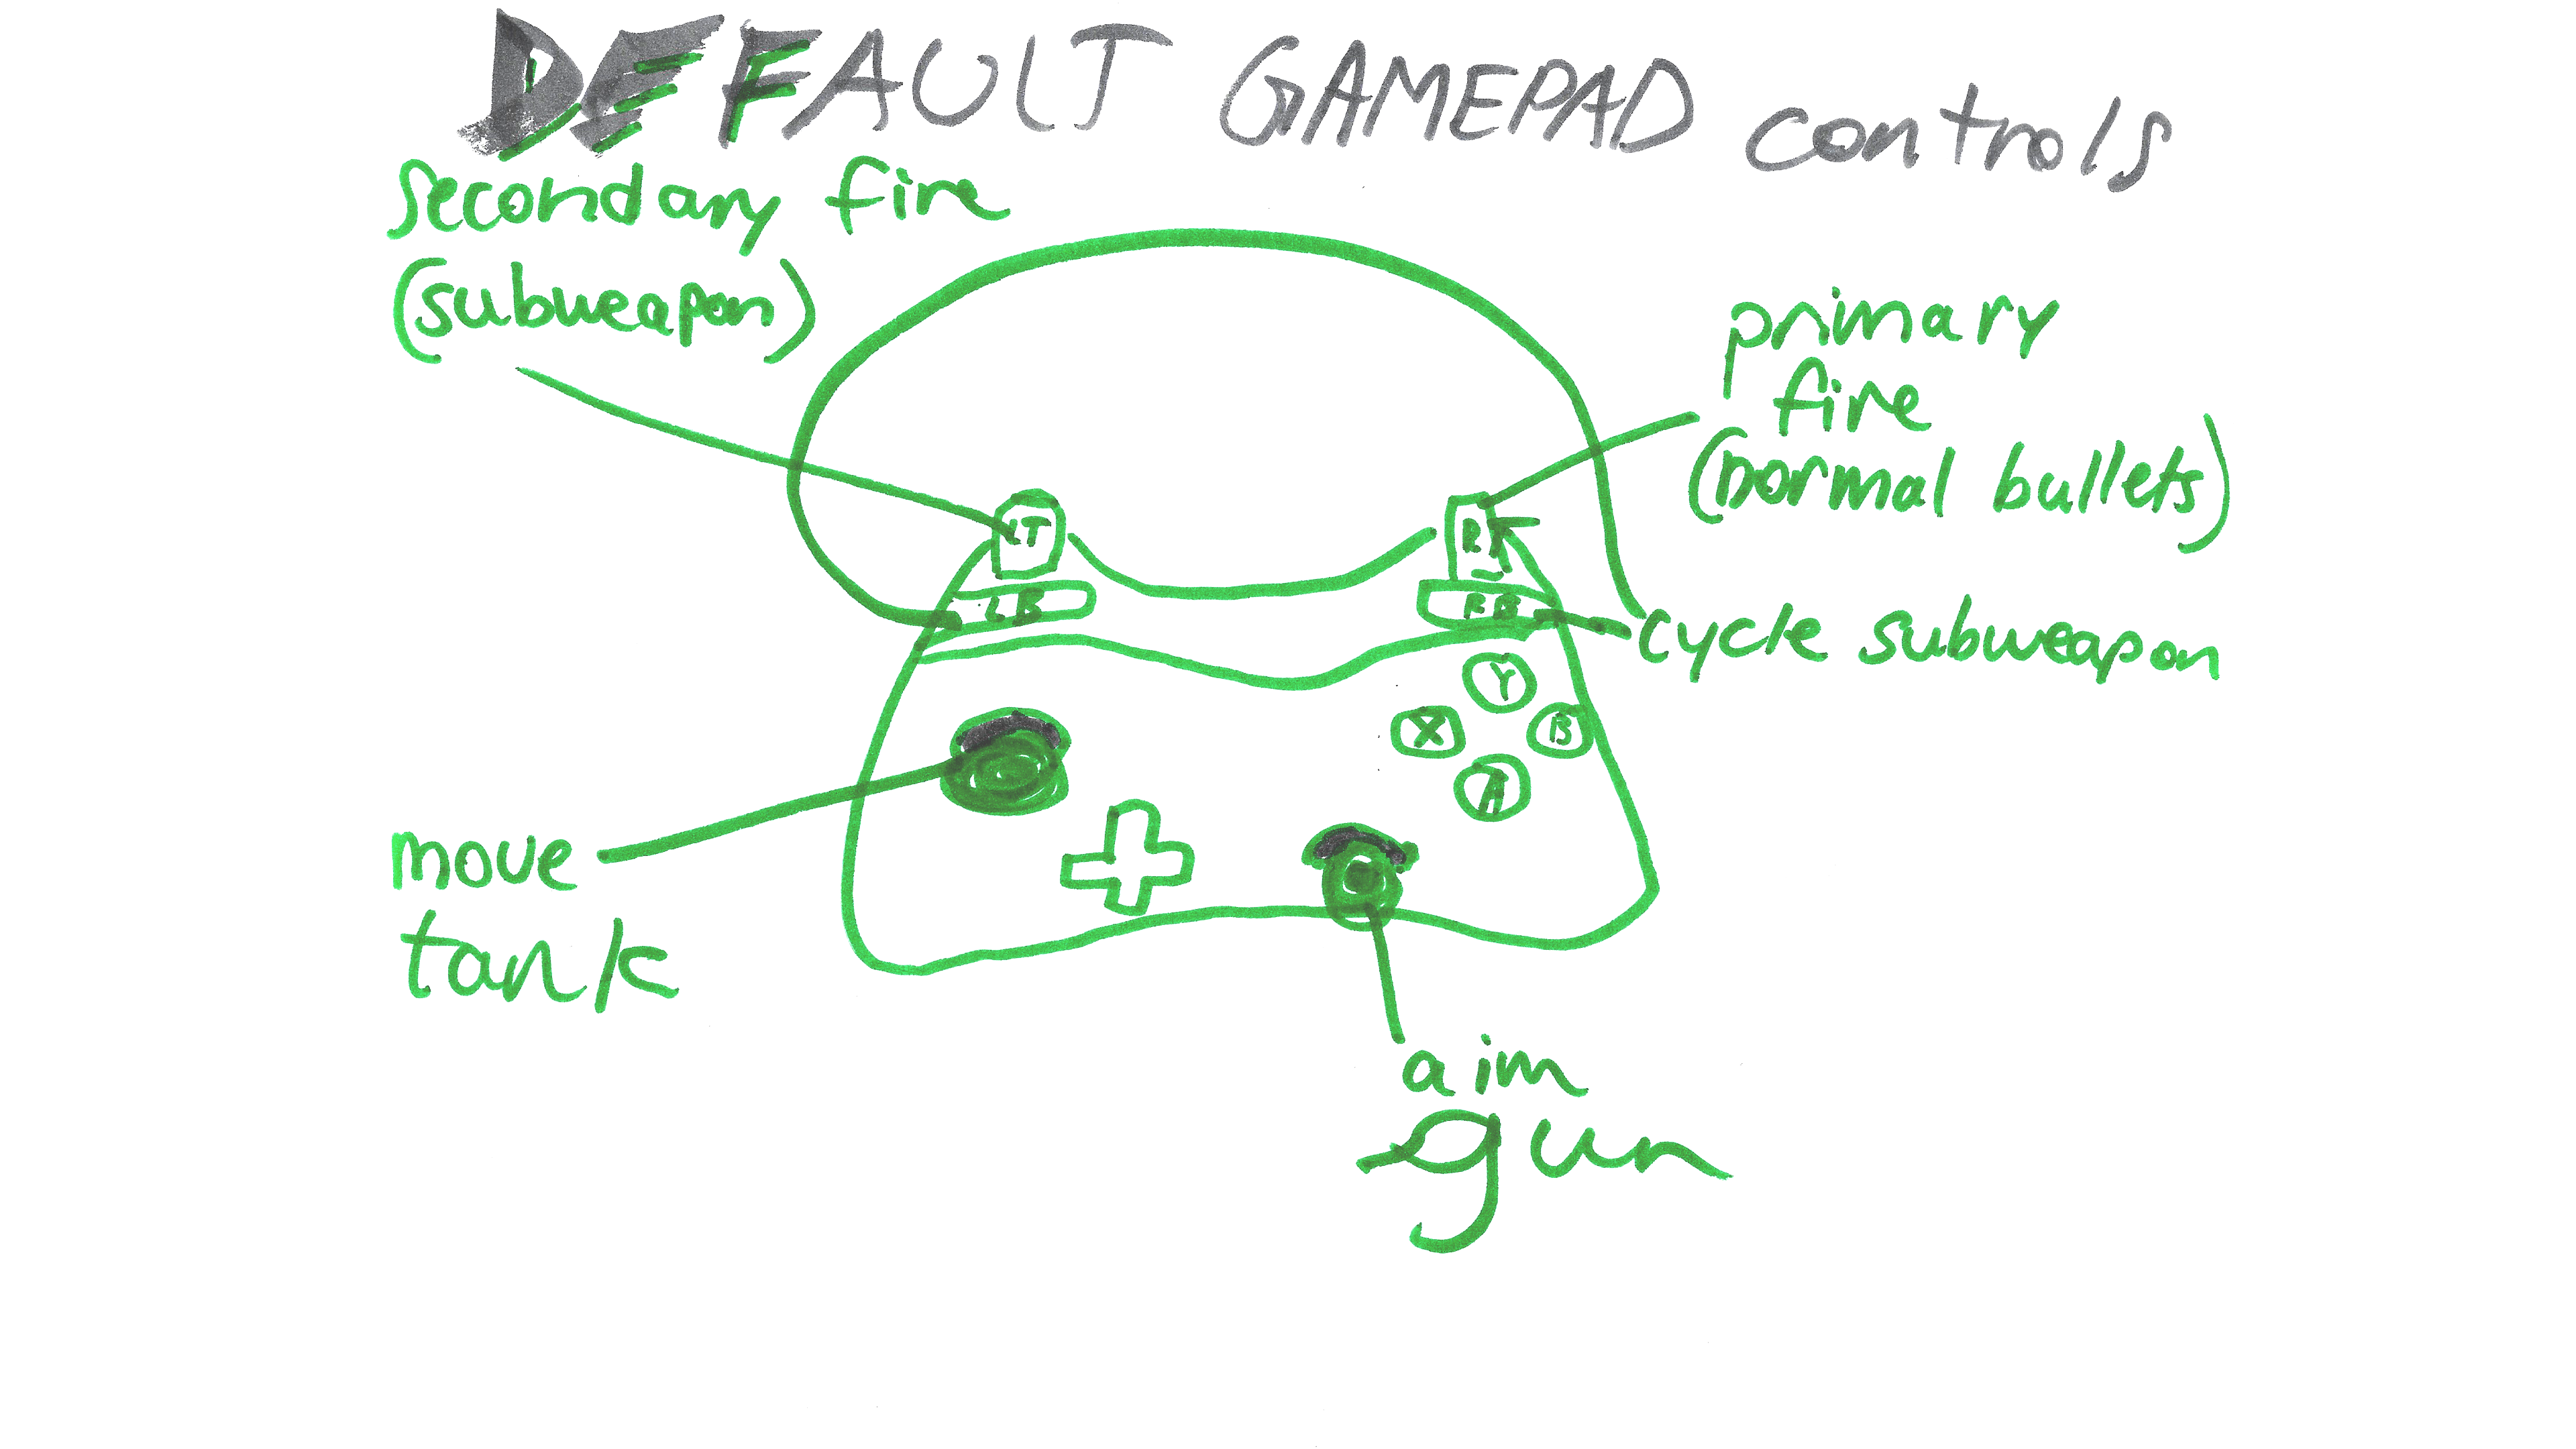 DEFAULT GAMEPAD controls
secondary fire
(subweapon)
primary
fire
(normal bullets)
LT
RT
LB
RB
cycle subweapon
Y
X
B
A
move
tank
aim
gun